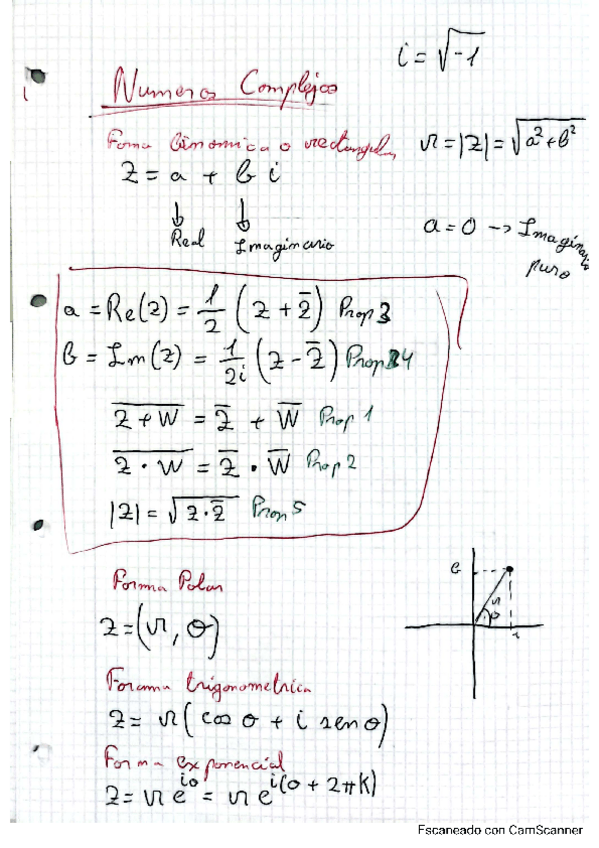 i = √-1
Numeros Complejos
Forma binomica o rectangular
r = |z| = √a² + b²
z = a + b i
↓ ↓
Real Imaginario
a = 0 -> Imaginario puro
a = Re(z) = 1/2 (z + z̅) Prop 3
b = Im(z) = 1/2i (z - z̅) Prop 4
\overline{z + w} = z̅ + w̅ Prop 1
\overline{z · w} = z̅ · w̅ Prop 2
|z| = √z · z̅ Prop 5
Forma Polar
z = (r, θ)
b
r
θ
Forama trigonometrica
z = r (cos θ + i sen θ)
Forma exponencial
z = r e^{iθ} = r e^{i(θ + 2πK)}
Escaneado con CamScanner